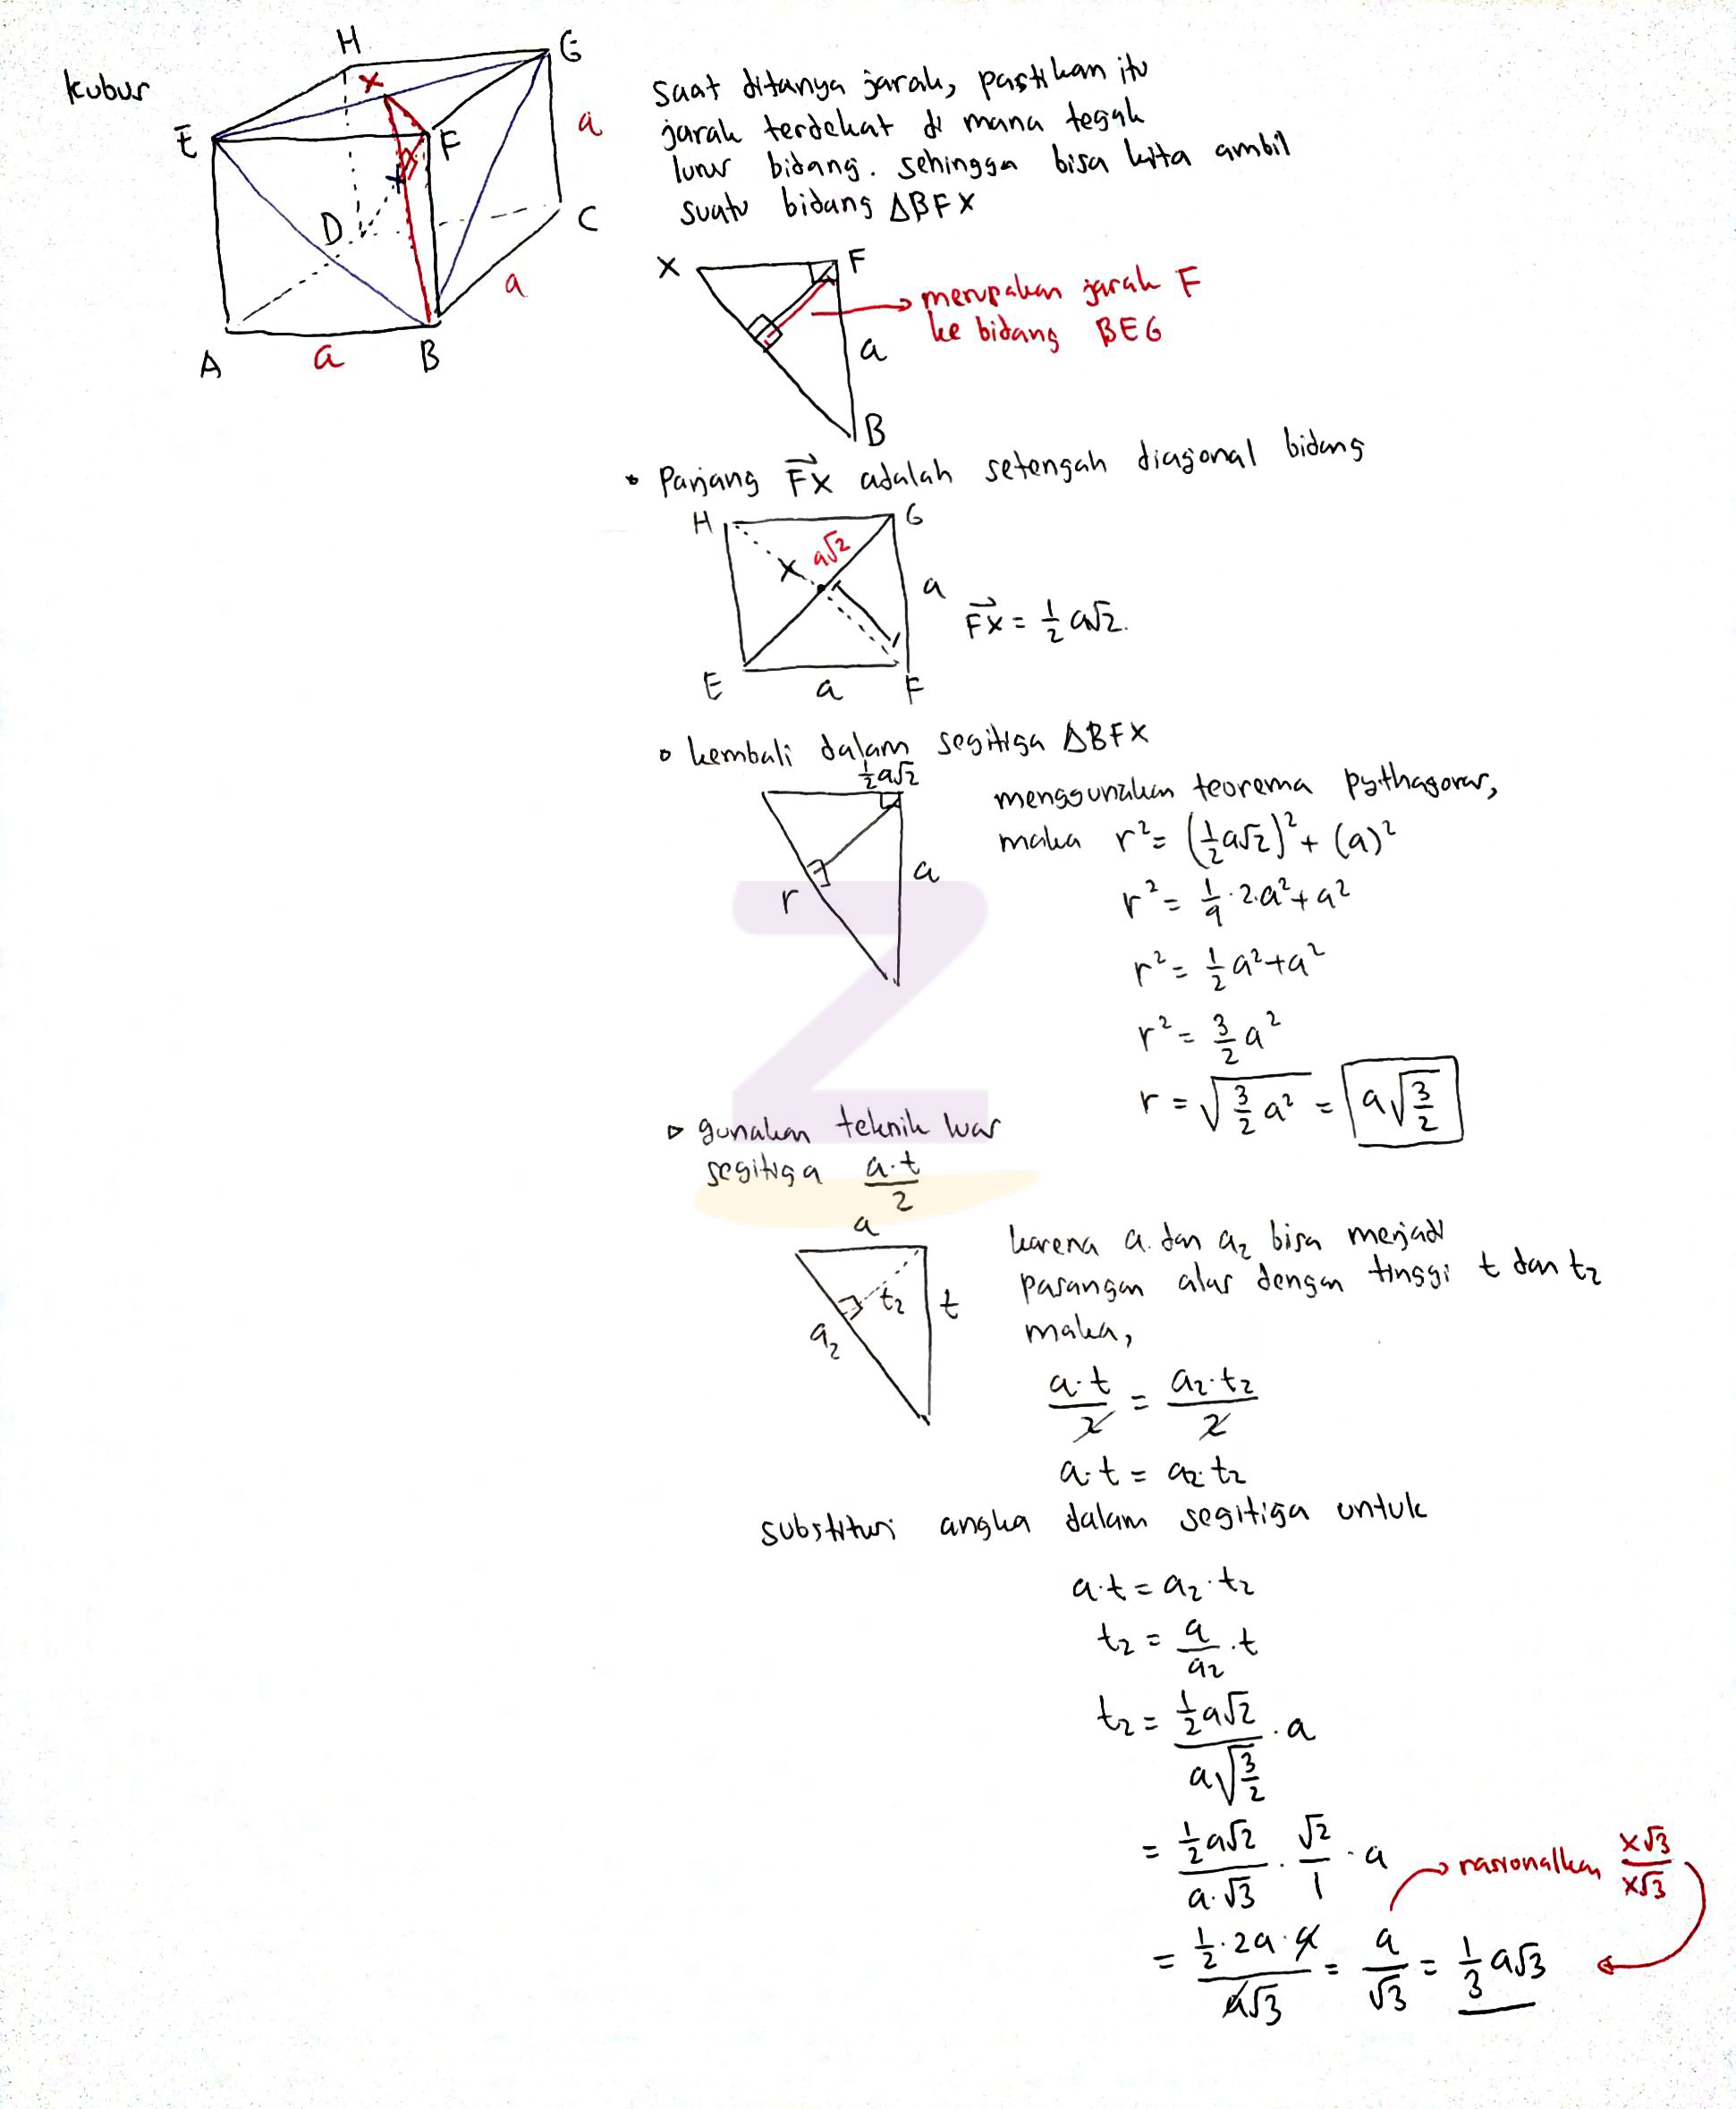 kubus
H
G
X
E
F
a
D
C
a
A
a
B
saat ditanya jarak, pastikan itu
jarak terdekat di mana tegak
lurus bidang. sehingga bisa kita ambil
suatu bidang ΔBFX
X
F
→ merupakan jarak F
ke bidang BEG
a
B
• Panjang F⃗X adalah setengah diagonal bidang
H
G
a√2
X
a
F⃗X = 1/2 a√2.
E
a
F
• kembali dalam segitiga ΔBFX
1/2 a√2
a
r
menggunakan teorema pythagoras,
maka r² = (1/2 a√2)² + (a)²
r² = 1/4 · 2.a² + a²
r² = 1/2 a² + a²
r² = 3/2 a²
r = √(3/2 a²) = a√(3/2)
▷ gunakan teknik luas
segitiga a.t/2
a
t₂
t
a₂
karena a. dan a₂ bisa menjadi
pasangan alas dengan tinggi t dan t₂
maka,
a.t/2 = a₂.t₂/2
a.t = a₂.t₂
substitusi angka dalam segitiga untuk
a.t = a₂.t₂
t₂ = a/a₂ .t
t₂ = (1/2 a√2)/(a√(3/2)) . a
= (1/2 a√2)/(a.√3) . √2/1 . a
→ rasionalkan x√3/x√3
= (1/2 . 2a . a)/(a√3) = a/√3 = 1/3 a√3
Z